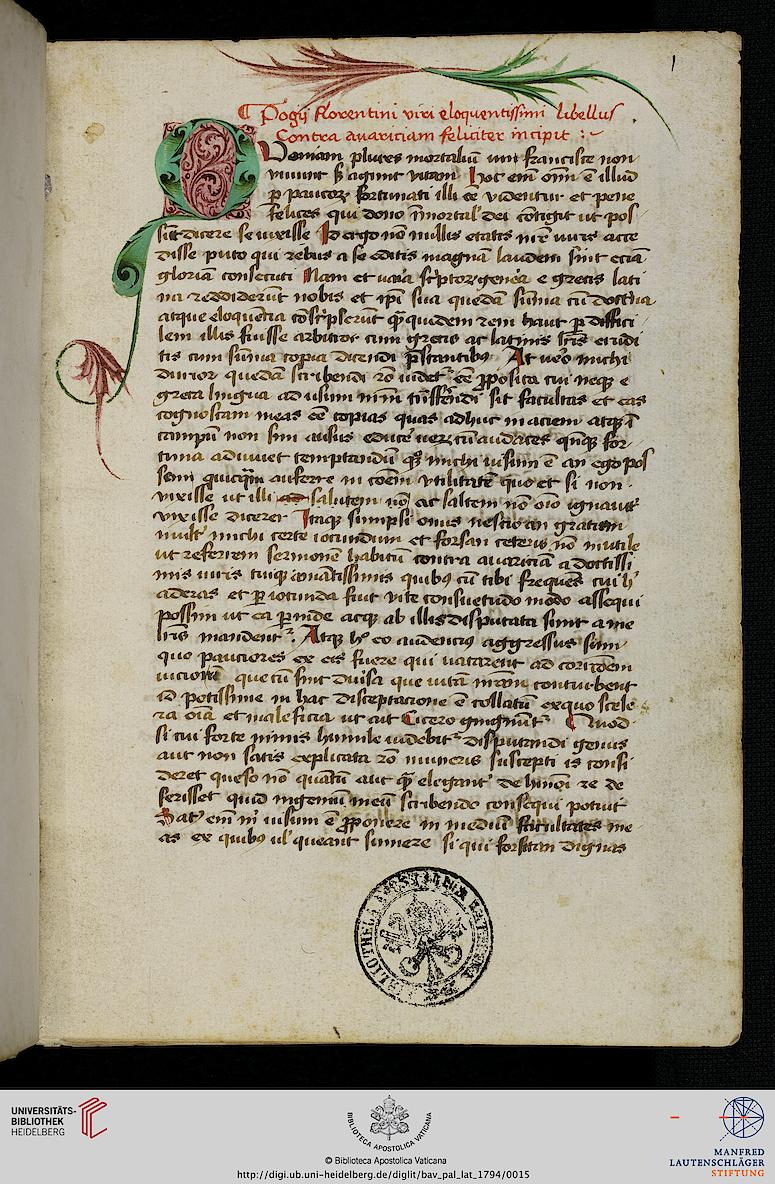 1
Pogij florentini viri eloquentissimi libellus
Contra auariciam feliciter incipit :~
Qvoniam plures mortaliū mi francisce non
viuunt sꝫ agunt vitam Hoc em̄ om̄ ē illud
ꝑ paucor fortunati illi eē videntur et pene
felices qui dono īmortal dei cōtigit ut pos
sītdicere se vixisse Id ergo non nullis etatis nr̄e viris acce
disse puto qui rebus a se editis magnā laudem sīnt eciā
gloriam consecuti Nam et varia sc̄ptor genera e grecis lati
na reddiderūt nobis et ip̄i sua quedā sūma cū doctrīa
atque eloquēcia cōsc̄pserūt q̄ꝫ quidem rem haut ꝑdiffici
lem illis fuisse arbitror cum grecis ac latinis lr̄is erudi
tis cum sūma copia dicendi p̄stantibus At vero michi
durior quedā scribendi rō videt eē ꝓposita cui neqꝫ e
greca lingua ad usum nr̄m trāsferēdi sit facultas et eas
cognoscam meas eē copias quas adhuc in aciem atqꝫ ī
campū non sim ausus educere verꝫ cū audaces qnqꝫ for
tuna adiuuet temptandū qꝫ michi visum ē an ego pos
sem quicq̄m auferre in cōem vtilitatē quo et si non
vixisse ut illi ad salutem nō ac saltem nō oīo ignauit
vixisse dicerer Itaqꝫ sumpsi onus nescio an gratum
mult michi certe iocundum et forsan ceteris nō inutile
ut referrem sermonē habitū contra auariciā a doctissi
mis viris tuiqꝫ amātissimis quibus cū tibi frequēs cui h
aderas et ꝑiocunda fiut vite consuetudo modo assequi
possim ut ea ꝑinde atqꝫ ab illis disputata sunt a me
lr̄is mandent Atqꝫ h eo audencius aggressus sum
quo pauciores ex eis fuere qui vacarent ad coricōem
viciorꝫ que cū sīnt diuisa que vitā nr̄am conturbent
id potissime in hac disceptacione ē collatū ex quo scele
ra oīa et maleficia ut ait Cicero gingnūt Quod
si cui forte nimis humile videbit disputandi genus
aut non satis explicata rō muneris suscepti is consi
deret queso nō quātū aut q̄ꝫ elegant de hmōi re de
serisset quid ingeniū meū scribendo consequi potuit
Sat em̄ m visum ē ꝓponere in mediū facultates me
as ex quibus ul queant sumere si qui forsitan dignas
UNIVERSITÄTS-
BIBLIOTHEK
HEIDELBERG
BIBLIOTECA APOSTOLICA VATICANA
© Biblioteca Apostolica Vaticana
http://digi.ub.uni-heidelberg.de/diglit/bav_pal_lat_1794/0015
MANFRED
LAUTENSCHLÄGER
STIFTUNG